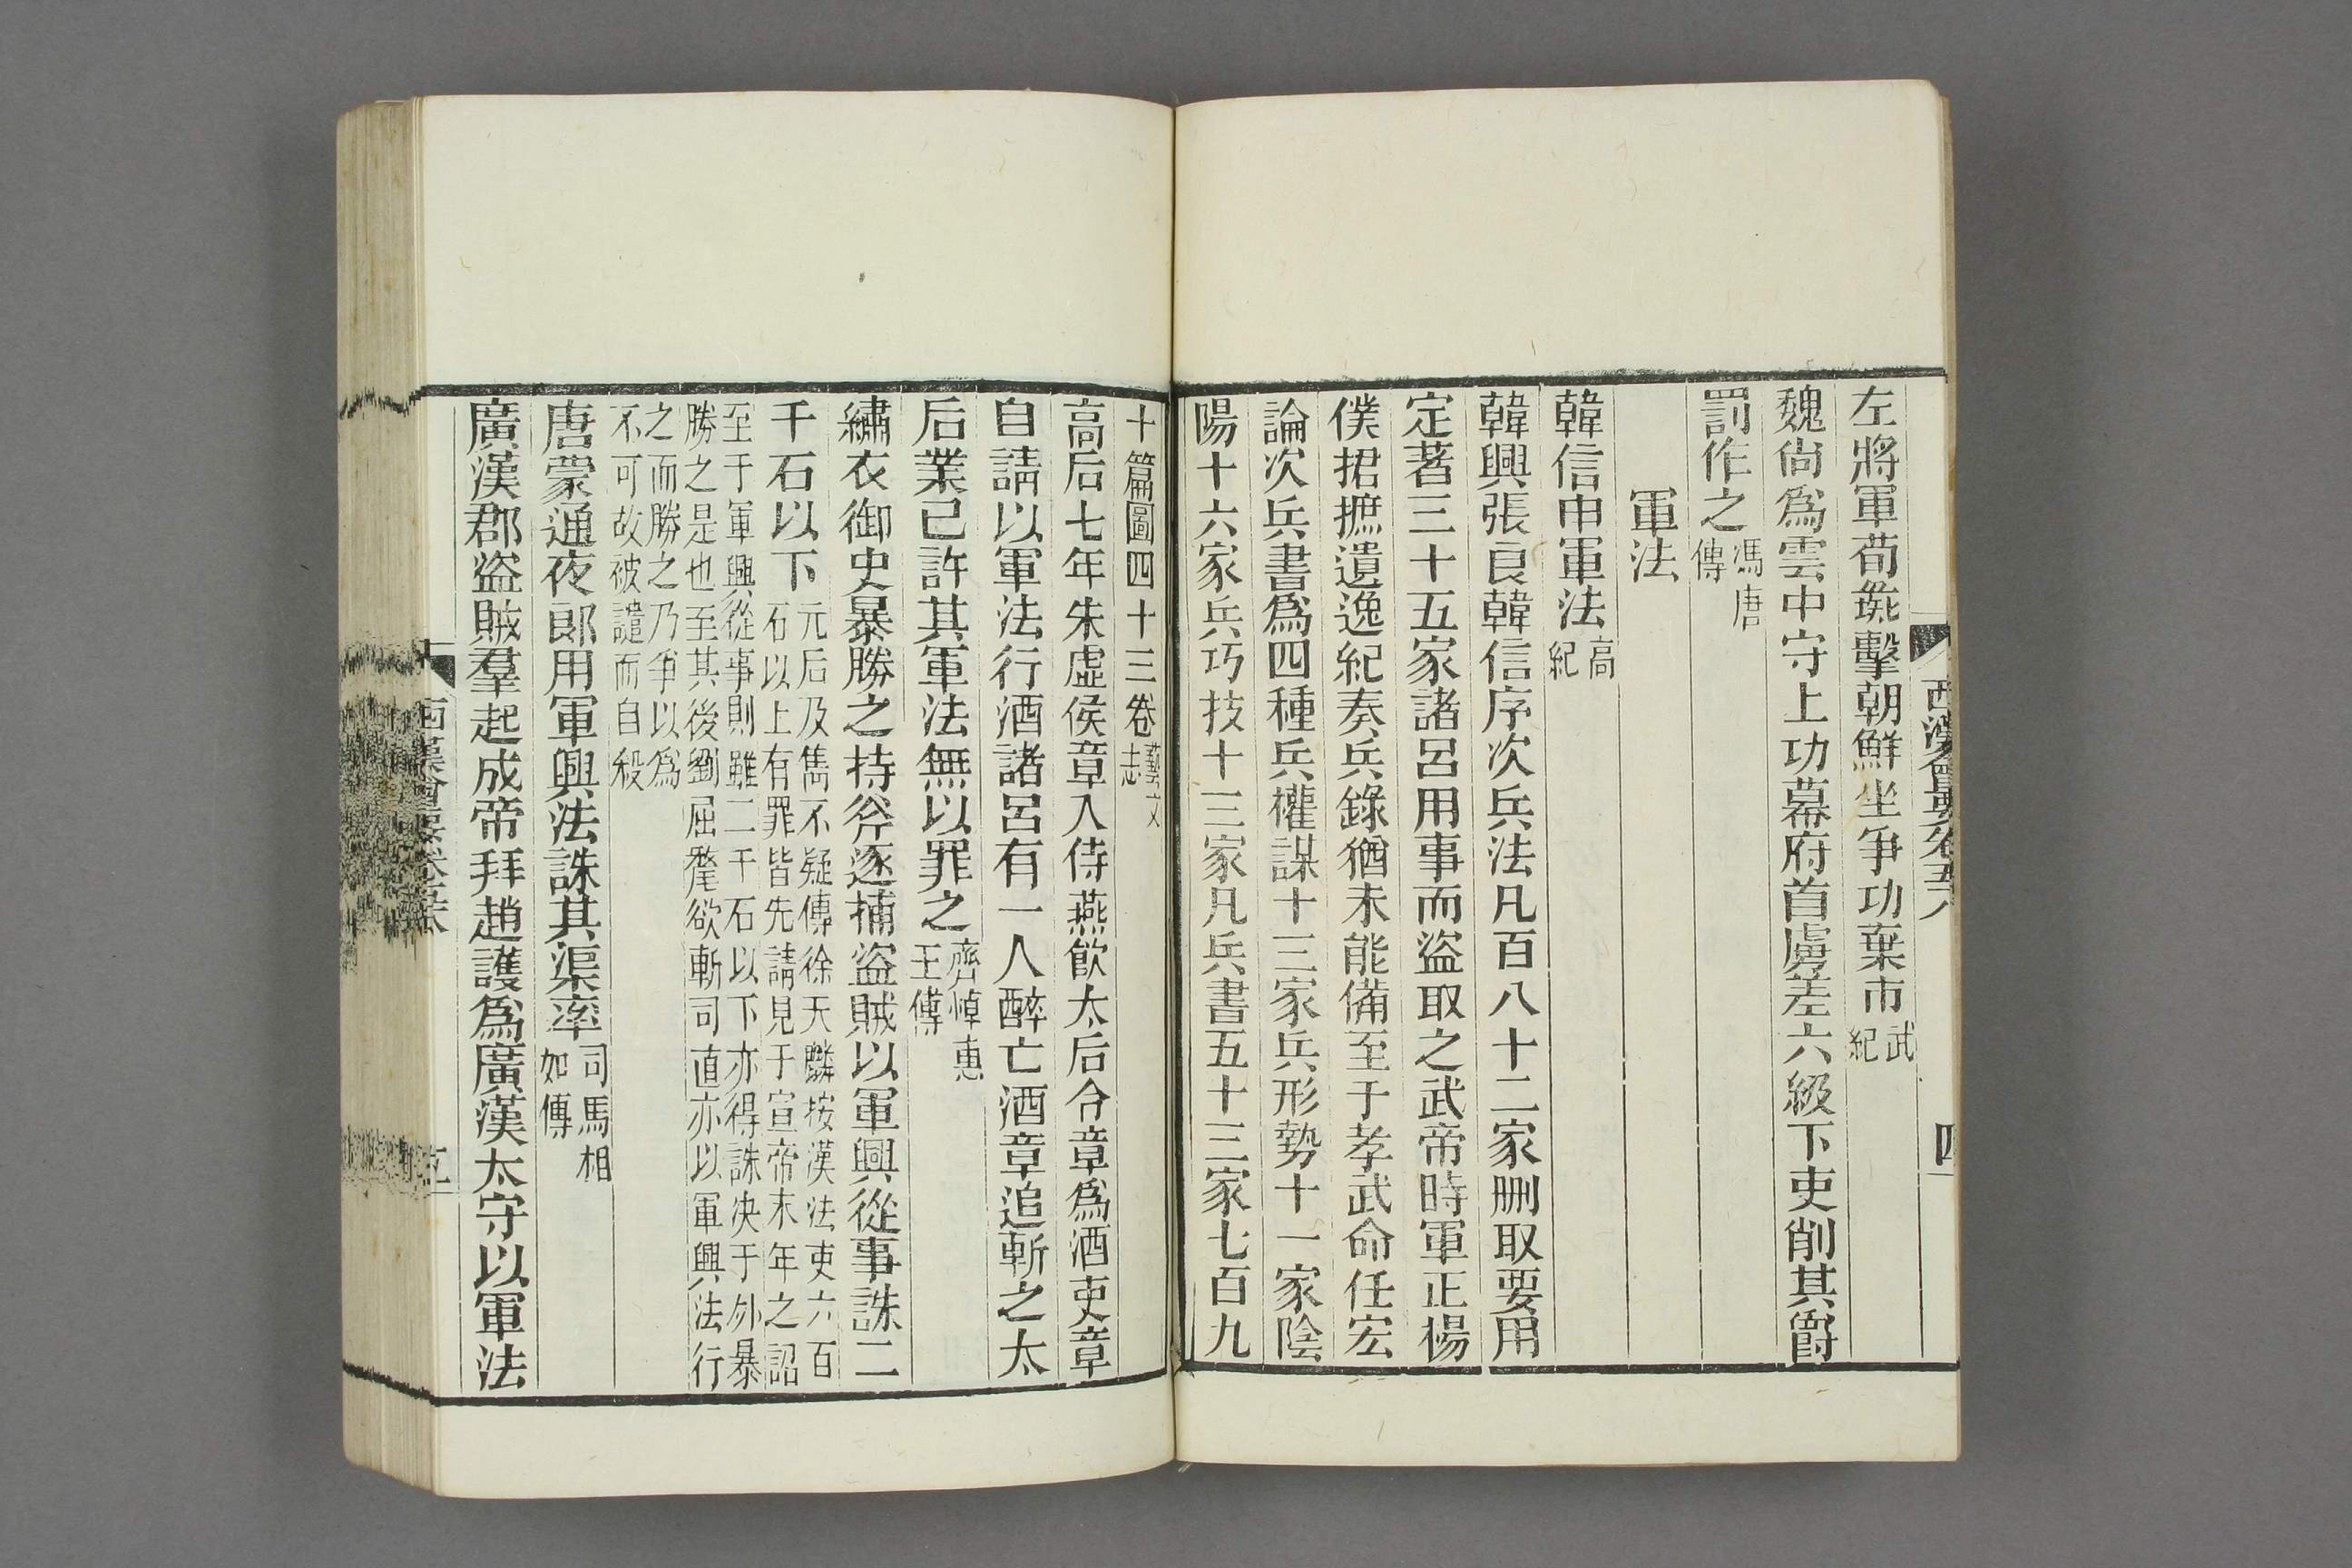 左將軍荀彘擊朝鮮坐爭功棄市武紀
魏尙爲雲中守上功幕府首虜差六級下吏削其爵
罰作之馮唐傳
軍法
韓信申軍法高紀
韓興張良韓信序次兵法凡百八十二家刪取要用
定著三十五家諸呂用事而盜取之武帝時軍正楊
僕捃摭遺逸紀奏兵錄猶未能備至于孝武命任宏
論次兵書爲四種兵權謀十三家兵形勢十一家陰
陽十六家兵巧技十三家凡兵書五十三家七百九
十篇圖四十三卷藝文志
高后七年朱虛侯章入侍燕飮太后令章爲酒吏章
自請以軍法行酒諸呂有一人醉亡酒章追斬之太
后業已許其軍法無以罪之齊悼惠王傳
繡衣御史暴勝之持斧逐捕盜賊以軍興從事誅二
千石以下元后及雋不疑傳徐天麟按漢法吏六百
石以上有罪皆先請見于宣帝末年之詔
至于軍興從事則雖二千石以下亦得誅決于外暴
勝之是也至其後劉屈氂欲斬司直亦以軍興法行
之而勝之乃爭以爲
不可故被譴而自殺
唐蒙通夜郎用軍興法誅其渠率司馬相如傳
廣漢郡盜賊羣起成帝拜趙護爲廣漢太守以軍法
西漢會要卷
四
西漢會要卷
五